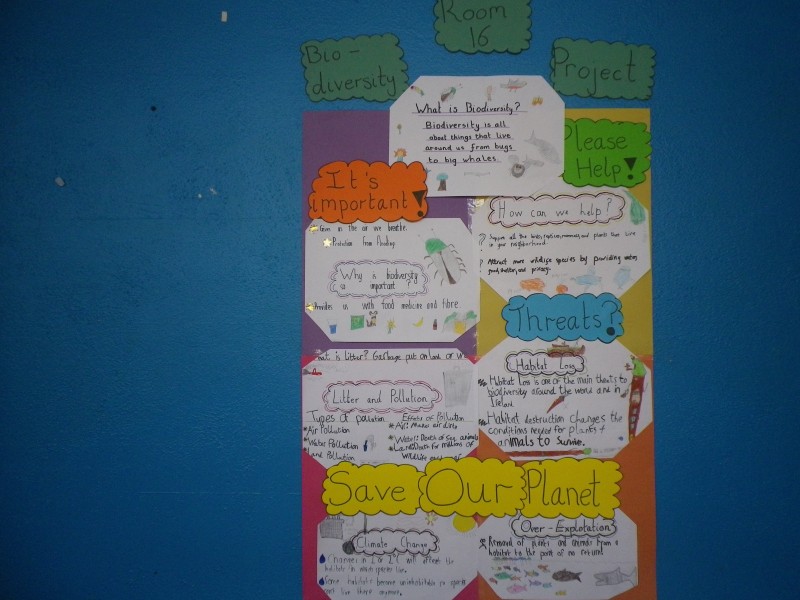 Bio-
diversity
Room
16
Project
What is Biodiversity?
Biodiversity is all
about things that live
around us from bugs
to big whales
Please
Help!
It's
important!
in the air we breathe.
Protection from flooding
Why is biodiversity
important?
us with food medicine and fibre
How can we help?
all the birds, reptiles, mammals, and plants that live
in your neighborhood.
Attract more wildlife species by providing water,
food, shelter, and privacy.
Threats?
Habitat Loss
Habitat Loss is one of the main threats to
biodiversity around the world and in
Ireland
Habitat destruction changes the
conditions needed for plants +
animals to survive.
What is litter? Garbage put on land or
Litter and Pollution
Types of pollution
Air Pollution
Water Pollution
Land Pollution
Effects of Pollution
Air: Makes air dirty
Water: Death of Sea animals
Land: Death for millions of
Wildlife
Save Our Planet
Climate Change
Changes in will affect the
habitats in which species live.
Some habitats become uninhabitable so species
not live there anymore.
Over-Explotation
Removal of plants and animals from a
habitat to the point of no return